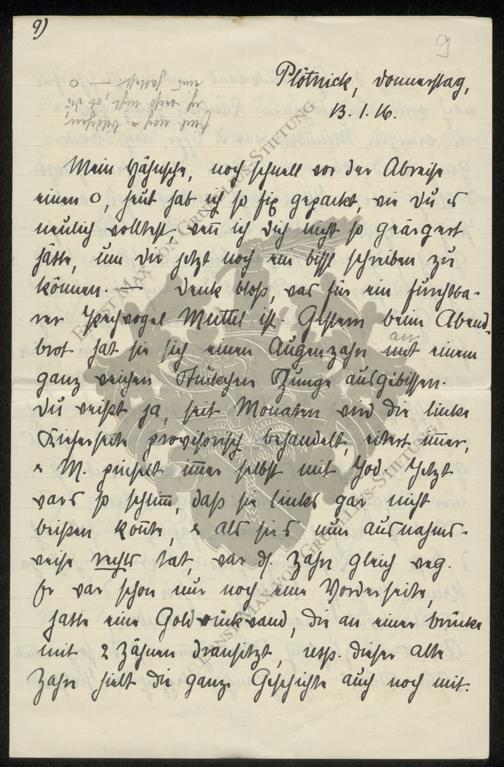 9)
9
Plötnick, Donnerstag,
13.1.16.
Mein Hähnsche, noch schnell vor der Abreise
einen O, heut hab ich so fix gepackt, wie Du es
neulich wolltest, wenn ich Dich nicht so geärgert
hätte, um Dir jetzt noch ein bissl schreiben zu
können. — Denk bloss, was für ein furchtba-
rer Pechvogel Muttel ist. Gestern beim Abend-
brot hat sie sich einen Augenzahn an
mit einem
ganz weichen Stückchen Zunge ausgebissen.
Du weisst ja, seit Monaten wird die linke
Kieferseite provisorisch behandelt, eitert immer,
& M. pinselt immer selbst mit Jod. Jetzt
wars so schlimm, daß sie links gar nicht
beißen konnte, & als sie's nun ausnahms-
weise rechts tat, war ds. Zahn gleich weg.
Er war schon nur noch eine Vorderseite,
hatte eine Goldrückwand, die an einer Brücke
mit 2 Zähnen dransitzt, resp. dieser alte
Zahn hielt die ganze Geschichte auch noch mit.
ERNST MAX VON GRUNELIUS-STIFTUNG
ERNST MAX VON GRUNELIUS-STIFTUNG